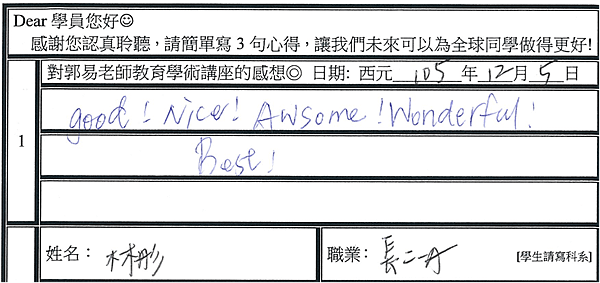 Dear 學員您好☺
感謝您認真聆聽，請簡單寫 3 句心得，讓我們未來可以為全球同學做得更好!
對郭易老師教育學術講座的感想◎ 日期: 西元 105 年 12 月 5 日
1
good! Nice! Awsome! Wonderful!
Best!
姓名： 林彤
職業： 長二丹 [學生請寫科系]